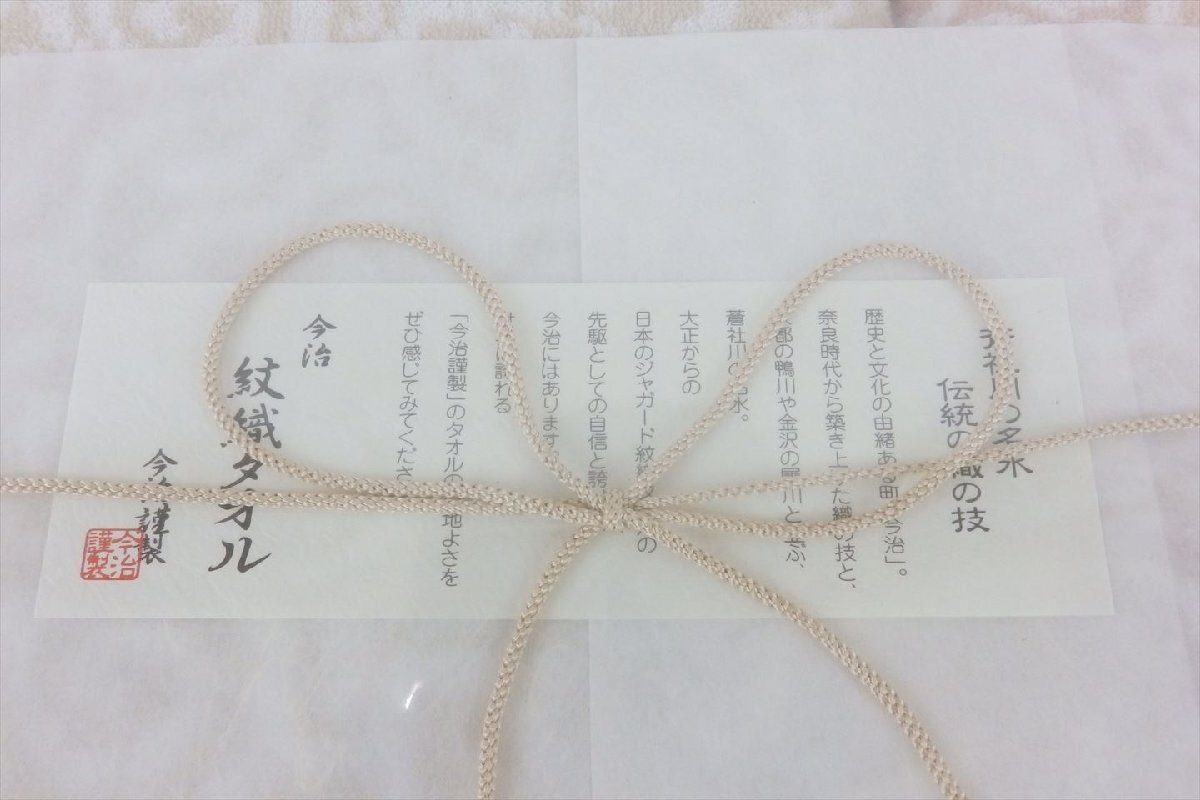 蒼社川の名水
伝統の織の技
歴史と文化の由緒ある町「今治」。
奈良時代から築き上げた織の技と、
京都の鴨川や金沢の犀川と並ぶ、
蒼社川の名水。
大正からの
日本のジャガード紋織の
先駆としての自信と誇り
今治にはあります。
誇れる
「今治謹製」のタオルの心地よさを
ぜひ感じてみてくださ
今治
紋織タオル
今治謹製
今治謹製